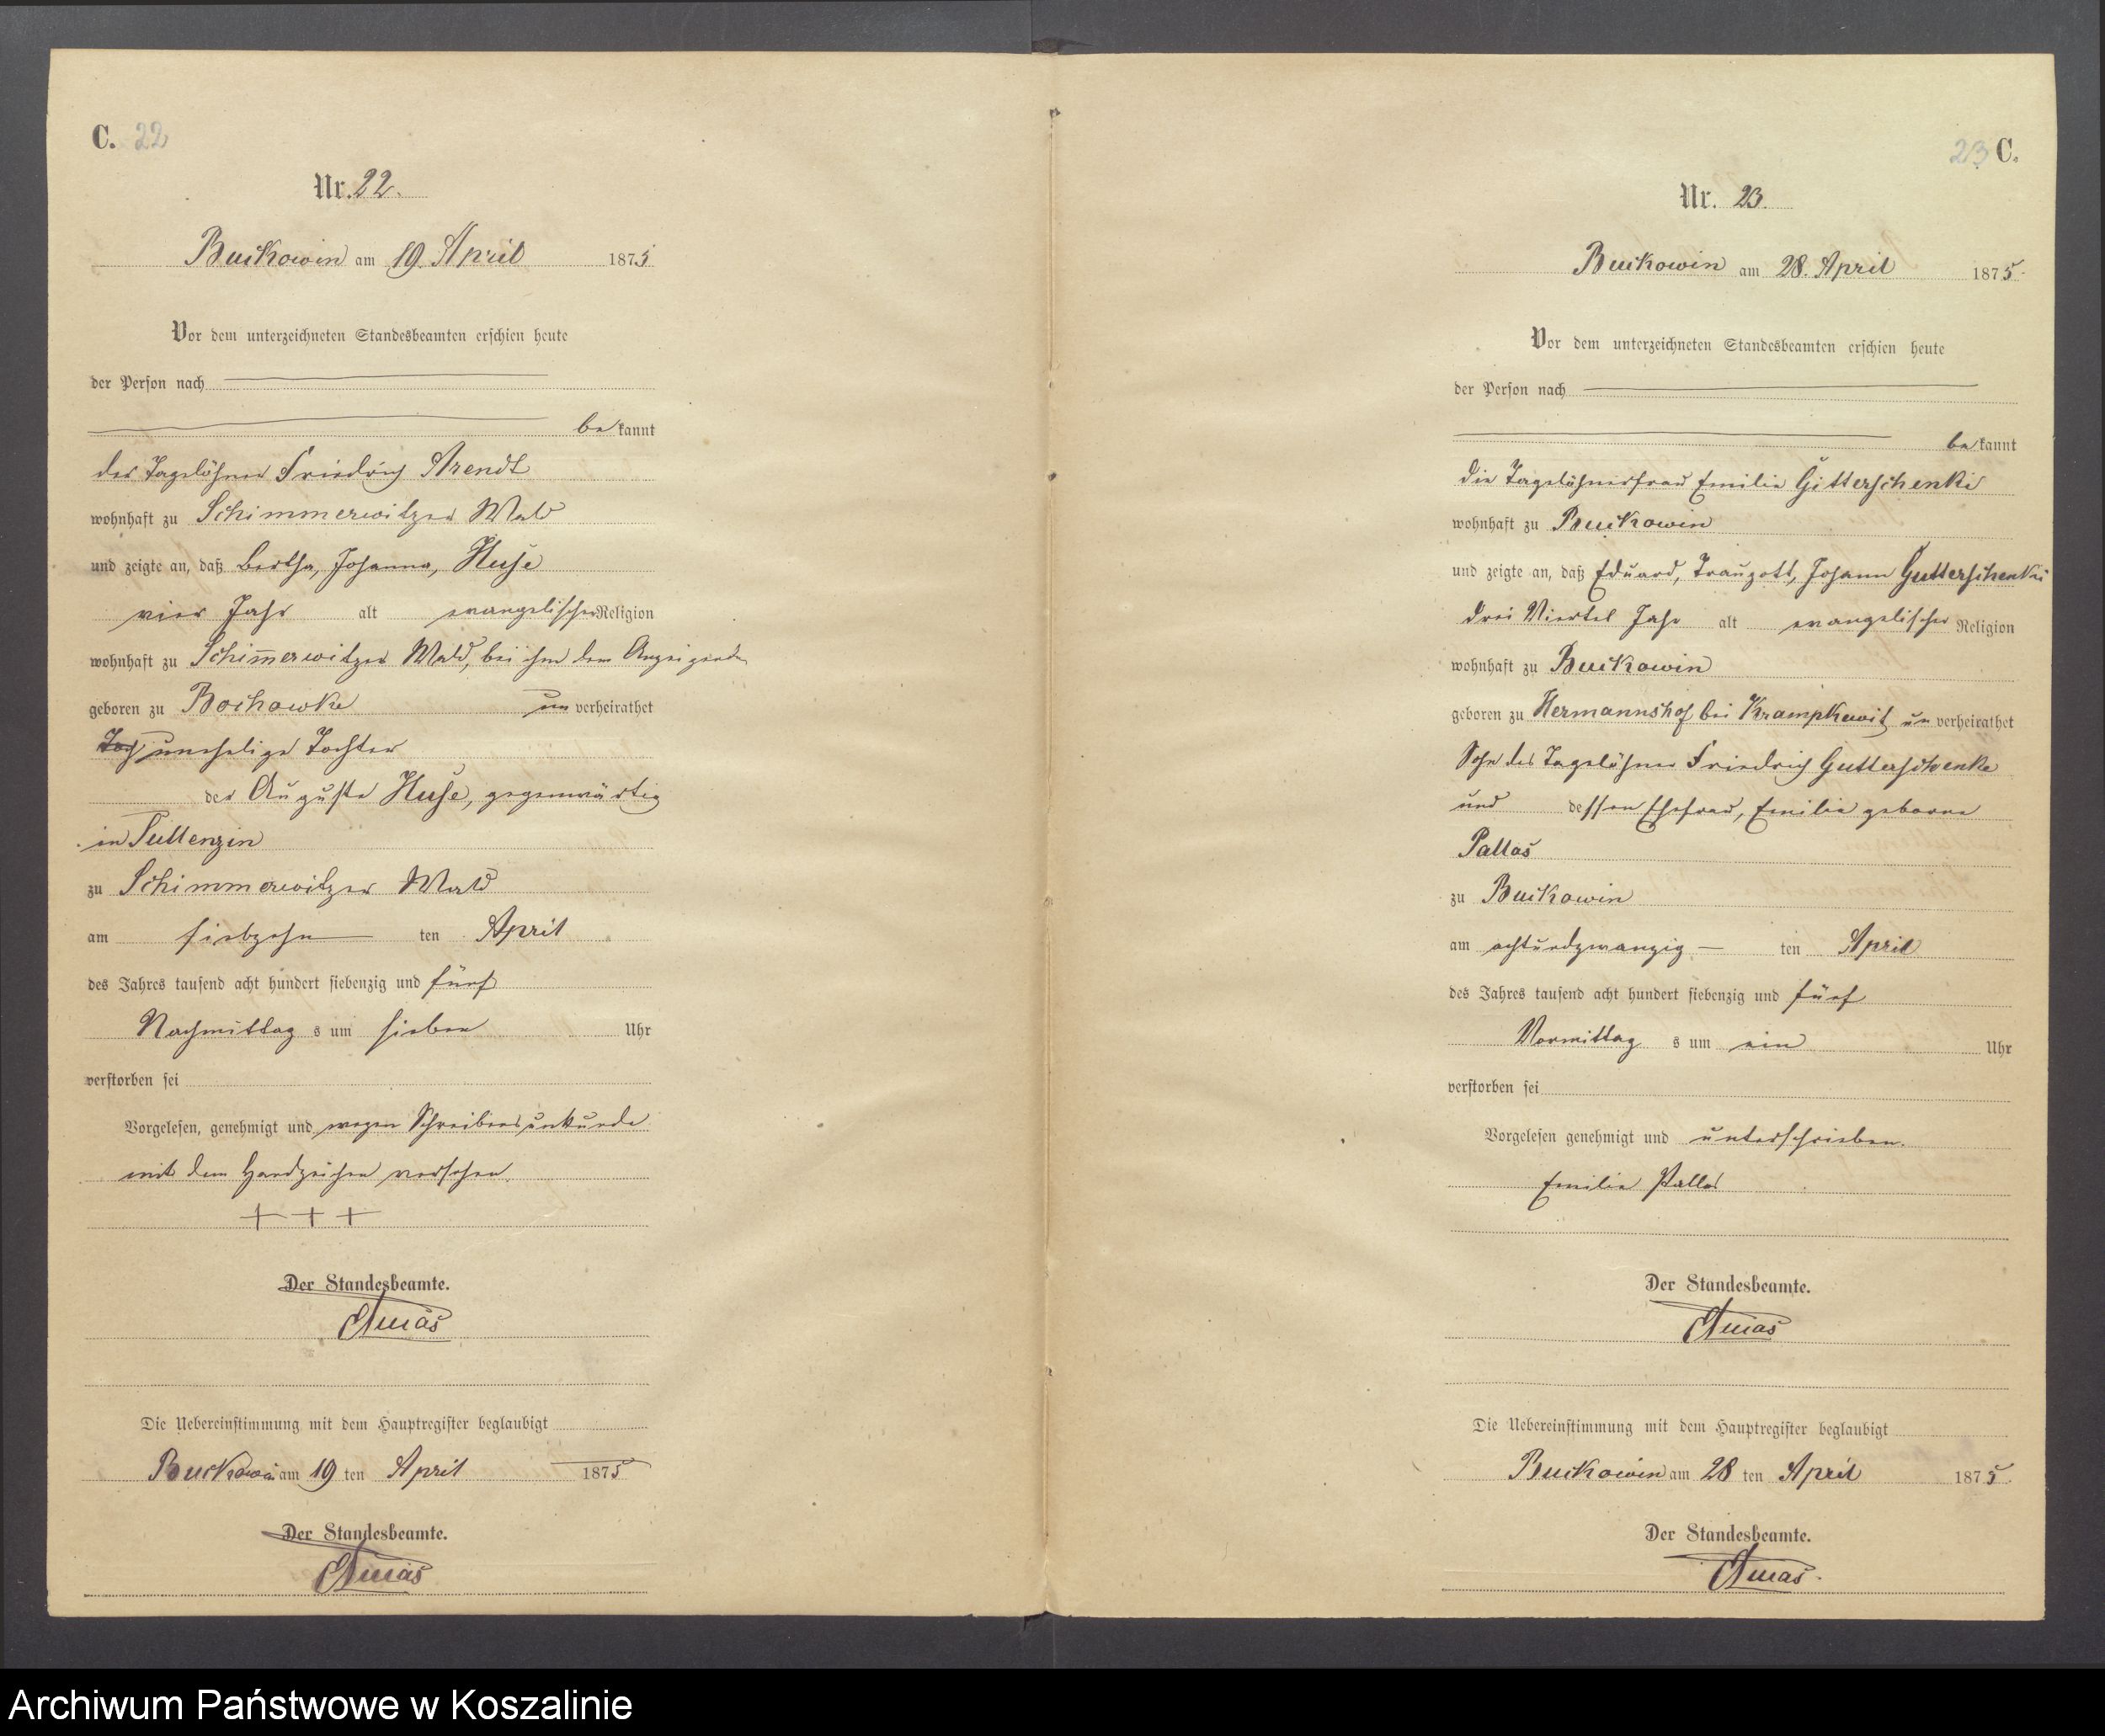 C. 22
Nr. 22.
Buckowin am 19. April 1875
Vor dem unterzeichneten Standesbeamten erschien heute
der Person nach
bekannt
der Tagelöhner Friedrich Arendt
wohnhaft zu Schimmerwitzer Wald
und zeigte an, daß Bertha, Johanna, Huse
vier Jahr alt evangelischer Religion
wohnhaft zu Schimmerwitzer Wald, bei ihm dem Anzeigenden
geboren zu Bochowke unverheirathet
Toch unehelige Tochter
der Auguste Huse, gegenwärtig
in
zu Schimmerwitzer Wald
am siebzehn ten April
des Jahres tausend acht hundert siebenzig und fünf
Nachmittag s um sieben Uhr
verstorben sei
Vorgelesen, genehmigt und wegen Schreibensunkunde
mit dem Handzeichen versehen.
+ + +
Der Standesbeamte.
Die Uebereinstimmung mit dem Hauptregister beglaubigt
Buckowin am 19 ten April 1875
Der Standesbeamte.
23 C.
Nr. 23.
Buckowin am 28. April 1875.
Vor dem unterzeichneten Standesbeamten erschien heute
der Person nach
bekannt
die Tagelöhnerfrau Emilie Gütterschenke
wohnhaft zu Buckowin
und zeigte an, daß Eduard, Traugott, Johann Gutterschenke
drei Viertel Jahr alt evangelischer Religion
wohnhaft zu Buckowin
geboren zu Hermannshof bei Krampkewitz unverheirathet
Sohn des Tagelöhner Friedrich Gutterschenke
und dessen Ehefrau, Emilie geborne
Pallas
zu Buckowin
am achtundzwanzig ten April
des Jahres tausend acht hundert siebenzig und fünf
Vormittag s um ein Uhr
verstorben sei
Vorgelesen genehmigt und unterschrieben.
Emilie Pallas
Der Standesbeamte.
Die Uebereinstimmung mit dem Hauptregister beglaubigt
Buckowin am 28 ten April 1875.
Der Standesbeamte.
Archiwum Państwowe w Koszalinie